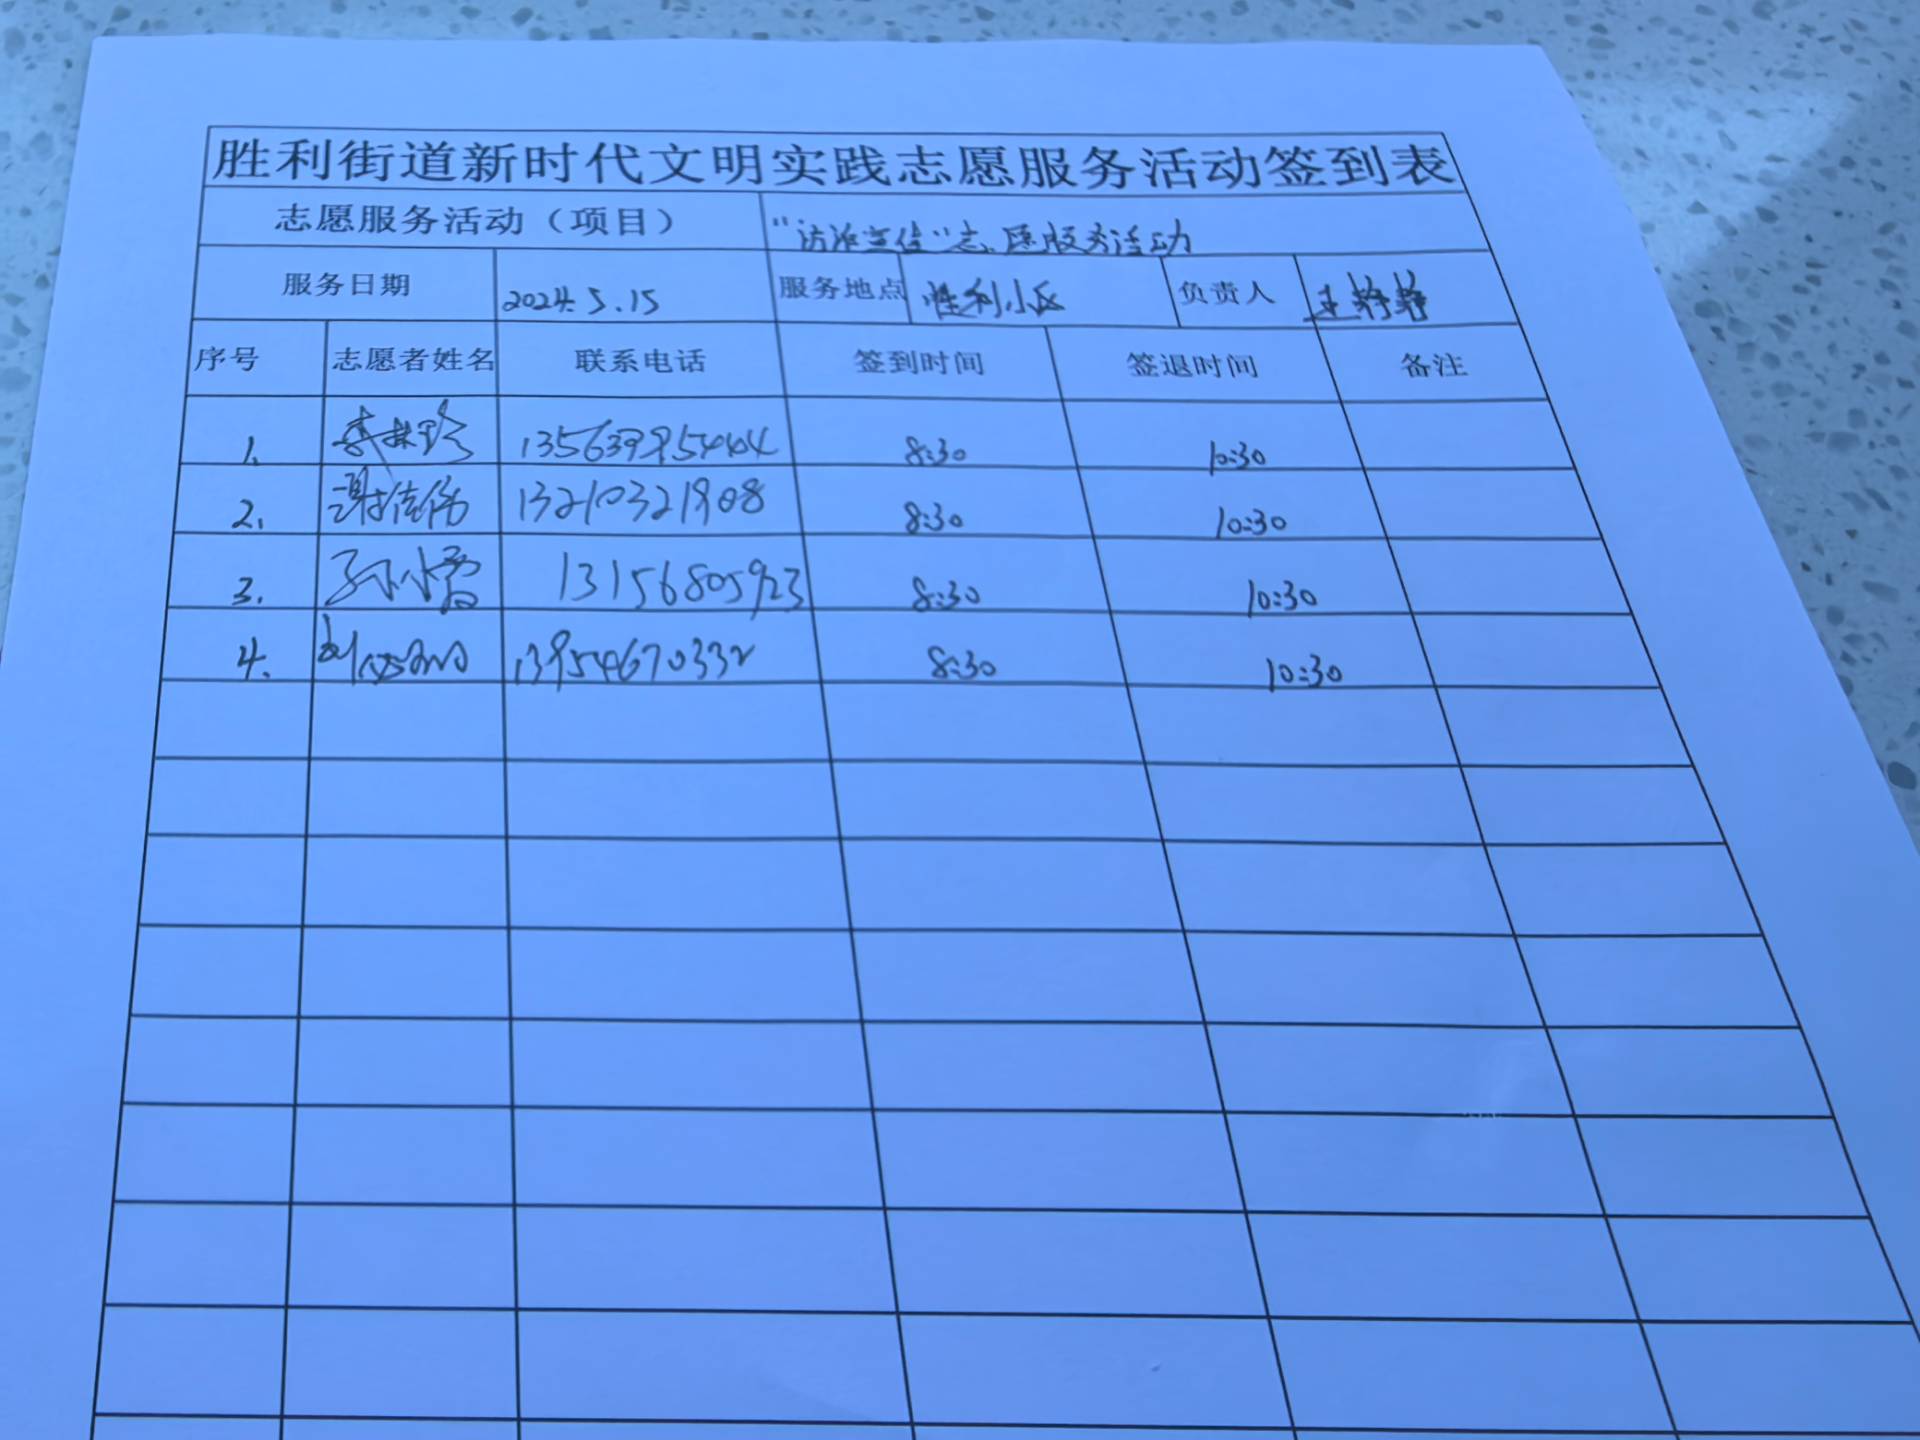 胜利街道新时代文明实践志愿服务活动签到表
志愿服务活动（项目） 志愿服务活动
服务日期 2024.5.15 服务地点 胜利小区 负责人 王静静
序号 志愿者姓名 联系电话 签到时间 签退时间 备注
1. 13563995444 8:30 10:30
2. 谢佳伟 13210321908 8:30 10:30
3. 孙小雪 13156805923 8:30 10:30
4. 13954670332 8:30 10:30